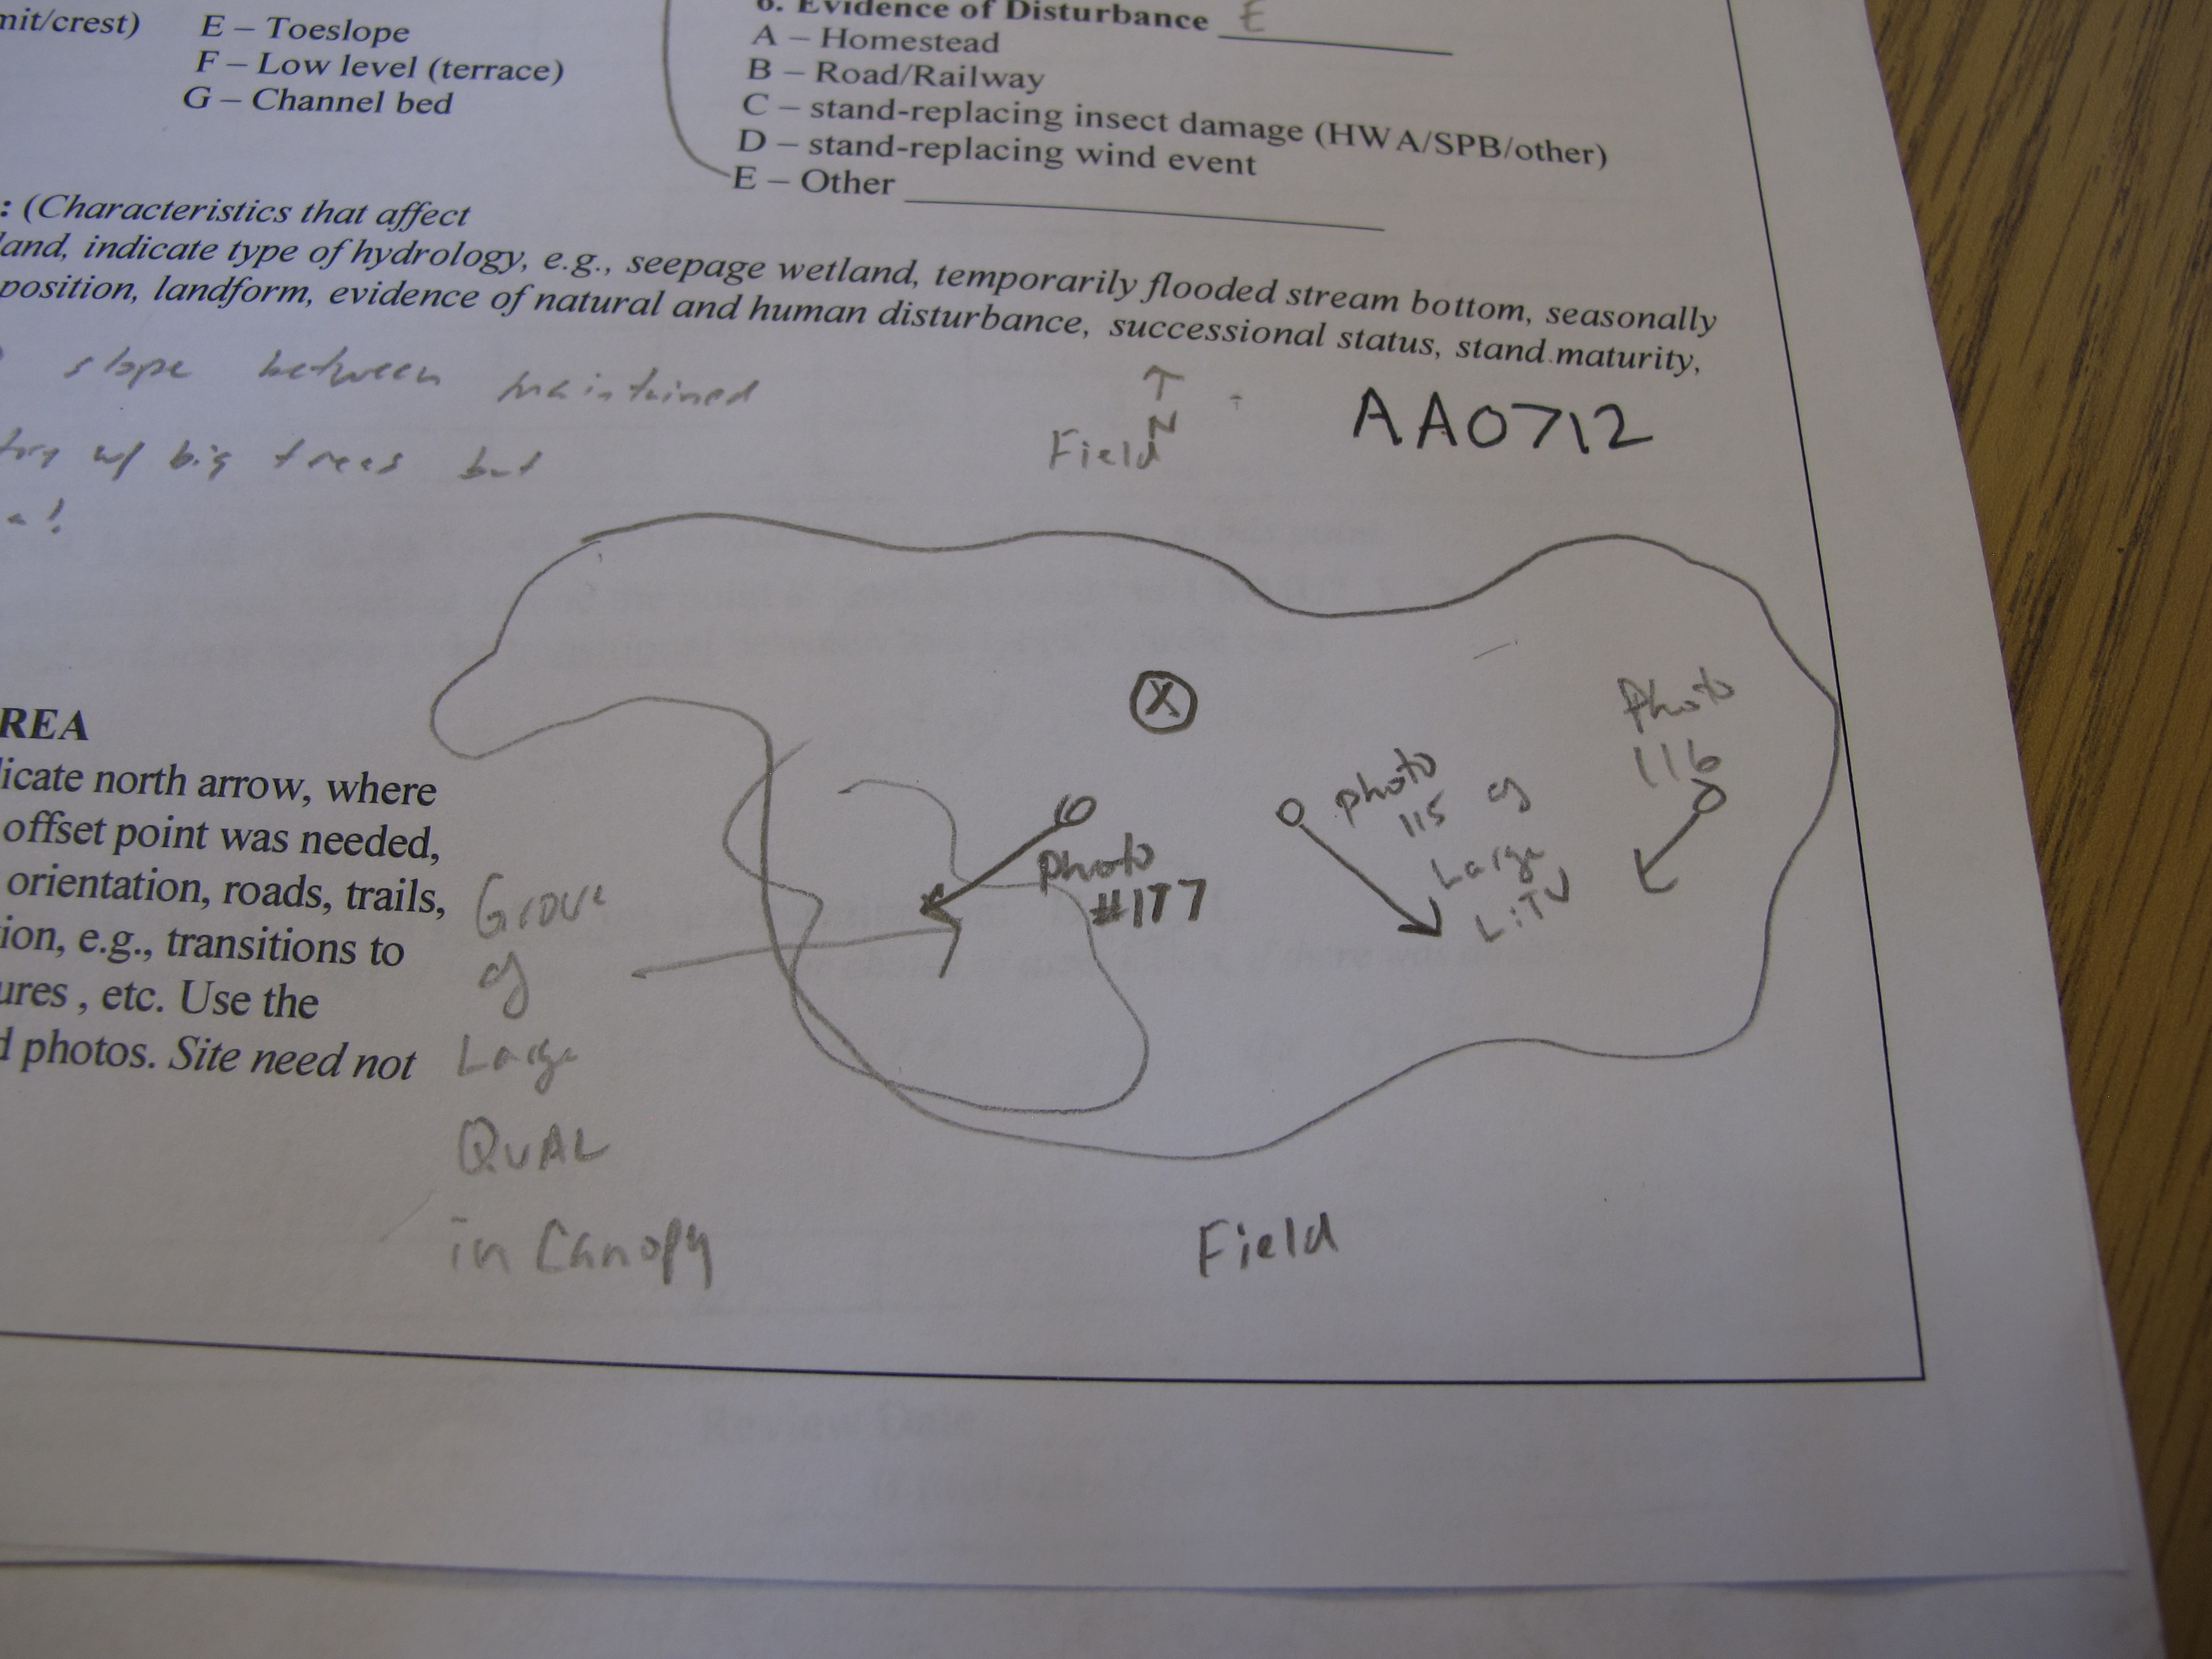 mit/crest)
E – Toeslope
F – Low level (terrace)
G – Channel bed
6. Evidence of Disturbance E
A – Homestead
B – Road/Railway
C – stand-replacing insect damage (HWA/SPB/other)
D – stand-replacing wind event
E – Other
: (Characteristics that affect
land, indicate type of hydrology, e.g., seepage wetland, temporarily flooded stream bottom, seasonally
position, landform, evidence of natural and human disturbance, successional status, stand maturity,
slope between maintained
w/ big trees but
N
Field
AA0712
X
Photo
116
photo
115 of
Large
LITU
photo
#117
REA
licate north arrow, where
offset point was needed,
orientation, roads, trails,
ion, e.g., transitions to
ures , etc. Use the
d photos. Site need not
Grove
of
Large
QUAL
in Canopy
Field
Review Date